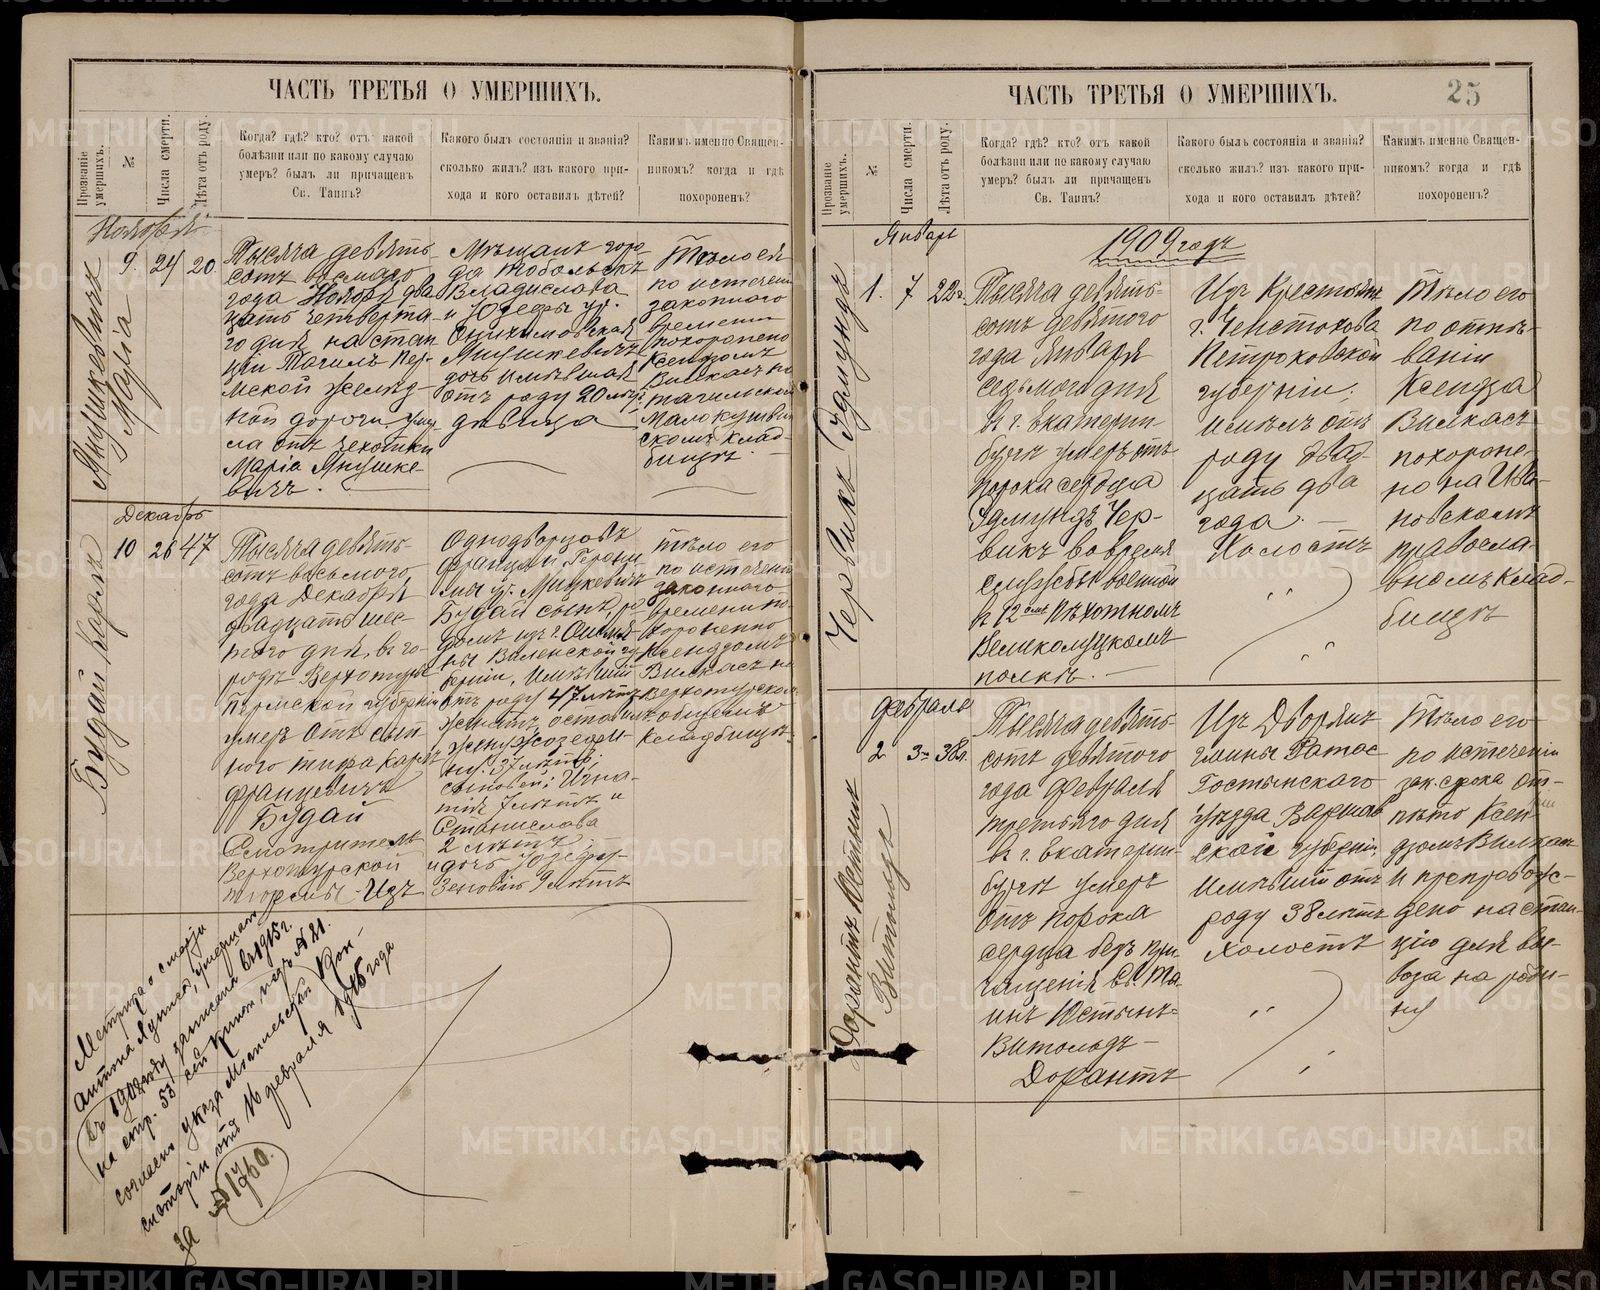 ЧАСТЬ ТРЕТЬЯ О УМЕРШИХЪ.
Прозваніе умершихъ.
№
Числа смерти.
Лѣта отъ роду.
Когда? гдѣ? кто? отъ какой
болѣзни или по какому случаю
умеръ? былъ ли причащенъ
Св. Таинъ?
Какого былъ состоянія и званія?
сколько жилъ? изъ какого при-
хода и кого оставилъ дѣтей?
Какимъ именно Священ-
никомъ? когда и гдѣ
похороненъ?
Ноябрь
Янушкевичъ
Марія
9. 24 20.
Тысяча девять-
сотъ восьмаго
года Ноября два
цать четверта-
го дня на стан
ціи Тагилъ Пер-
мской желѣз-
ной дороги, уме-
ла отъ чехотки
Марія Янушке-
вичъ.
Мѣщанъ горо
да Тобольска
Владислава
и Юзефы ур.
Янушкевичъ
дочь имѣвшая
отъ роду 20 лѣтъ
дѣвица
Тѣло ея
по истечени
законного
времени
похоронено
Ксендзомъ
Вилкасъ на
тагильском
скомъ клад-
бищѣ.
Декабрь
Будай Карлъ
10 26 47
Тысяча девять-
сотъ восьмого
года Декабря
двадцать шес-
того дня, въ го-
родѣ Верхотурьѣ
Пермской губерніи
умеръ отъ сып
ного тифа Карлъ
Францевичъ
Будай
Смотритель
Верхотурской
тюрьмы. Изъ
Однодворцовъ
Францъ и
Будай сынъ ро
домъ изъ г. Ошмя
ны Виленской гу
берніи, Имѣвшій
отъ роду 47 лѣтъ
Женатъ оставилъ
жену Жозефи
ну 37 лѣтъ;
сыновей: Игна-
тія 7 лѣтъ и
Станислава
2 лѣтъ,
и дочь Юзефу-
Зеновію 9 лѣтъ
Тѣло его
по истечени
законного
времени по-
хоронено
Ксендзомъ
Вилкасъ на
Верхотурском
общемъ
кладбищѣ.
Метрика о смерти
Антона умершаго
въ 1908 году записана въ 1915 г.
на стр. 55 сей книги подъ № 21.
согласно указа Могилевской Кон-
систоріи отъ 16 февраля 1915 года
за № 1760.
ЧАСТЬ ТРЕТЬЯ О УМЕРШИХЪ.
25
Прозваніе умершихъ.
№
Числа смерти.
Лѣта отъ роду.
Когда? гдѣ? кто? отъ какой
болѣзни или по какому случаю
умеръ? былъ ли причащенъ
Св. Таинъ?
Какого былъ состоянія и званія?
сколько жилъ? изъ какого при-
хода и кого оставилъ дѣтей?
Какимъ именно Священ-
никомъ? когда и гдѣ
похороненъ?
Январь
1909 годъ
Червикъ Эдмундъ
1. 7 22г.
Тысяча девять-
сотъ девятого
года Января
седьмого дня
въ г. Екатерин
бургѣ умеръ отъ
порока сердца
Эдмундъ Чер-
викъ во время
службы военной
въ 12омъ Пѣхотномъ
Великолуцкомъ
полкѣ. —
Изъ Крестьянъ
г. Ченстохова
Петроковской
губерніи;
имѣлъ отъ
роду двад-
цать два
года. —
Холостъ
Тѣло его
по отпѣ-
ваніи
Ксендза
Вилкасъ
похороне-
но на Ива-
новскомъ
правосла-
вномъ клад-
бищѣ
Февраль
Дорантъ Юстинъ
Витольдъ
2 3го 38л.
Тысяча девять-
сотъ девятого
года Февраля
третьяго дня
въ г. Екатерин-
бургѣ умеръ
отъ порока
сердца безъ при-
чащенія Св. Та-
инъ Юстынъ-
Витольдъ —
Дорантъ
Изъ Дворянъ
гмины
Гостынскаго
Уѣзда Варшав
ской губерніи,
Имѣвшій отъ
роду 38 лѣтъ
холостъ
Тѣло его
по истеченіи
зак. срока от-
пѣто Ксен-
дзомъ Вилкасъ
и препровож-
дено на стан-
цію для вы-
воза на роди-
ну
METRIKI.GASO-URAL.RU